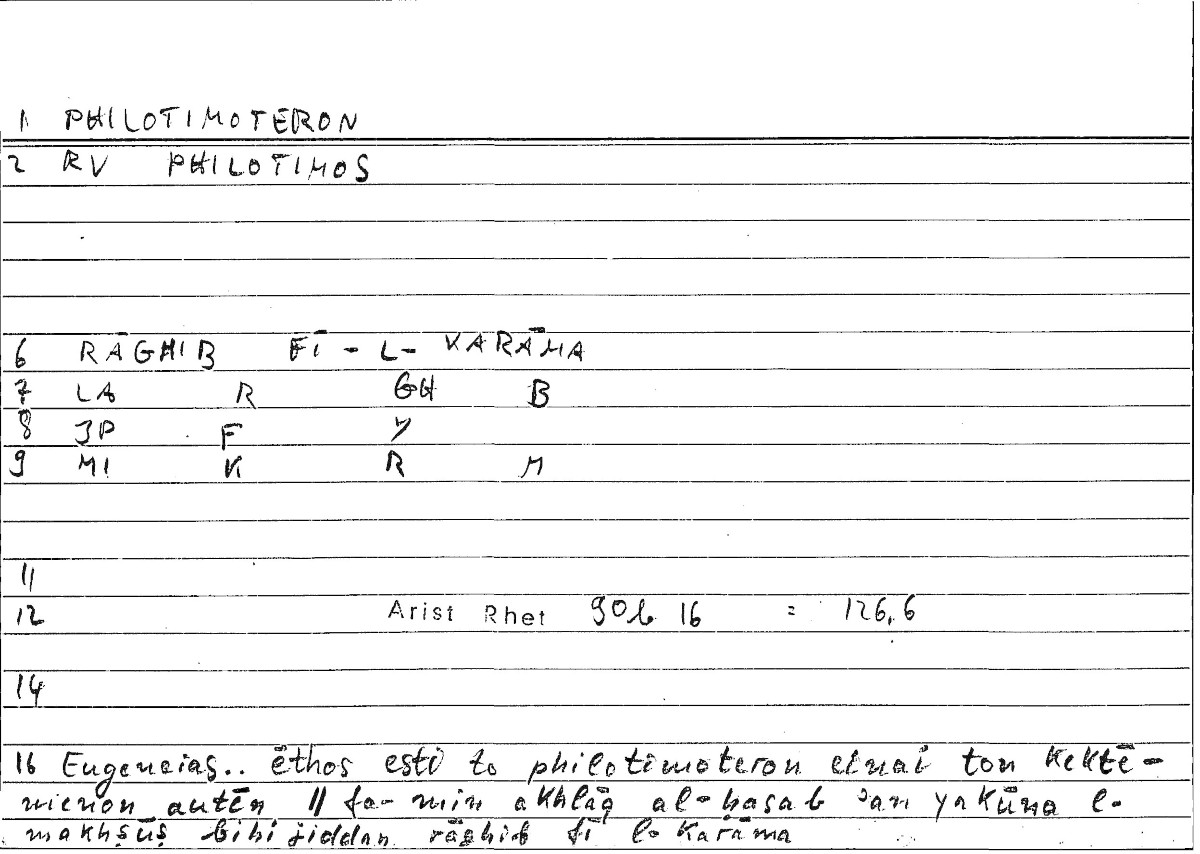 1 PHILOTIMOTERON
2 RV PHILOTIMOS
6 RĀGHIB FĪ - L - KARĀMA
7 LA R GH B
8 JP F Y
9 MI K R M
11
12 Arist Rhet 90b 16 = 126,6
14
16 Eugeneias.. ēthos esti to philotimoteron einai ton kektē-
menon autēn // fa- min akhlāq al-ḥasab ʾan yakūna l-
makhṣūṣ bihi jiddan rāghib fī l-karāma